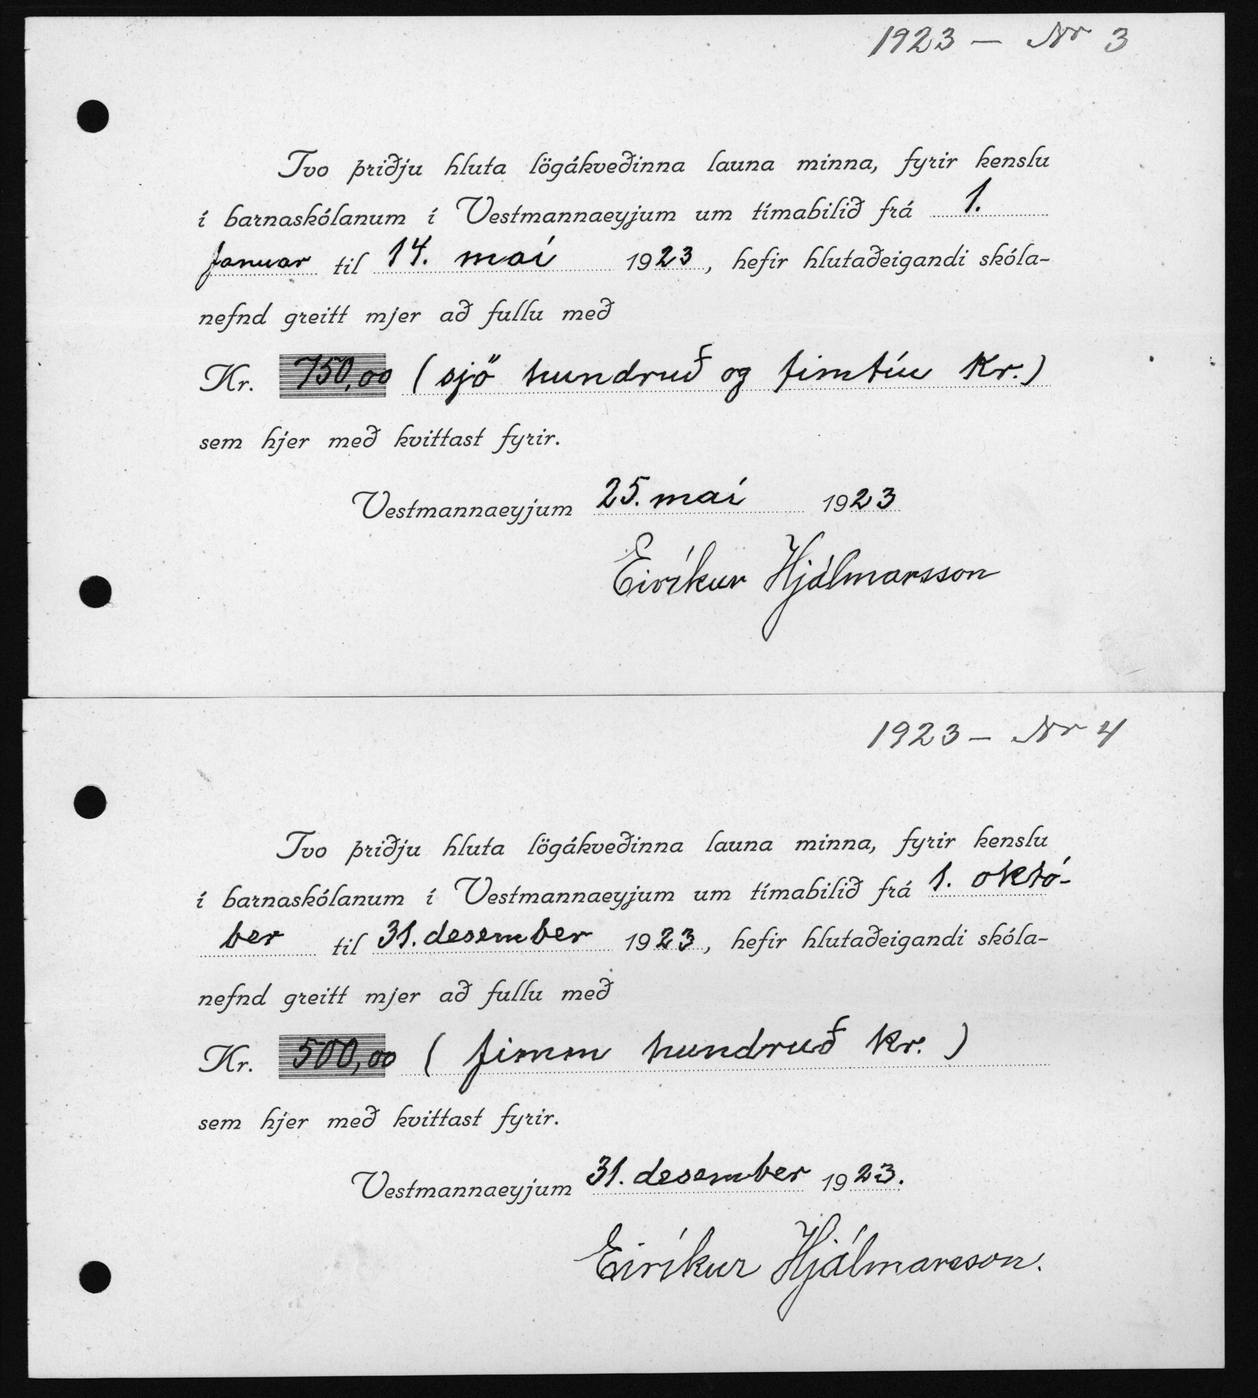 1923 — Nr 3
Tvo þriðju hluta lögákveðinna launa minna, fyrir kenslu
í barnaskólanum í Vestmannaeyjum um tímabilið frá 1.
januar til 14. maí 1923, hefir hlutaðeigandi skóla-
nefnd greitt mjer að fullu með
Kr. 750,00 (sjö hundruð og fimtíu Kr.)
sem hjer með kvittast fyrir.
Vestmannaeyjum 25. maí 1923
Eiríkur Hjálmarsson
1923 — Nr 4
Tvo þriðju hluta lögákveðinna launa minna, fyrir kenslu
í barnaskólanum í Vestmannaeyjum um tímabilið frá 1. októ-
ber til 31. desember 1923, hefir hlutaðeigandi skóla-
nefnd greitt mjer að fullu með
Kr. 500,00 ( fimm hundruð kr. )
sem hjer með kvittast fyrir.
Vestmannaeyjum 31. desember 1923.
Eiríkur Hjálmarsson.